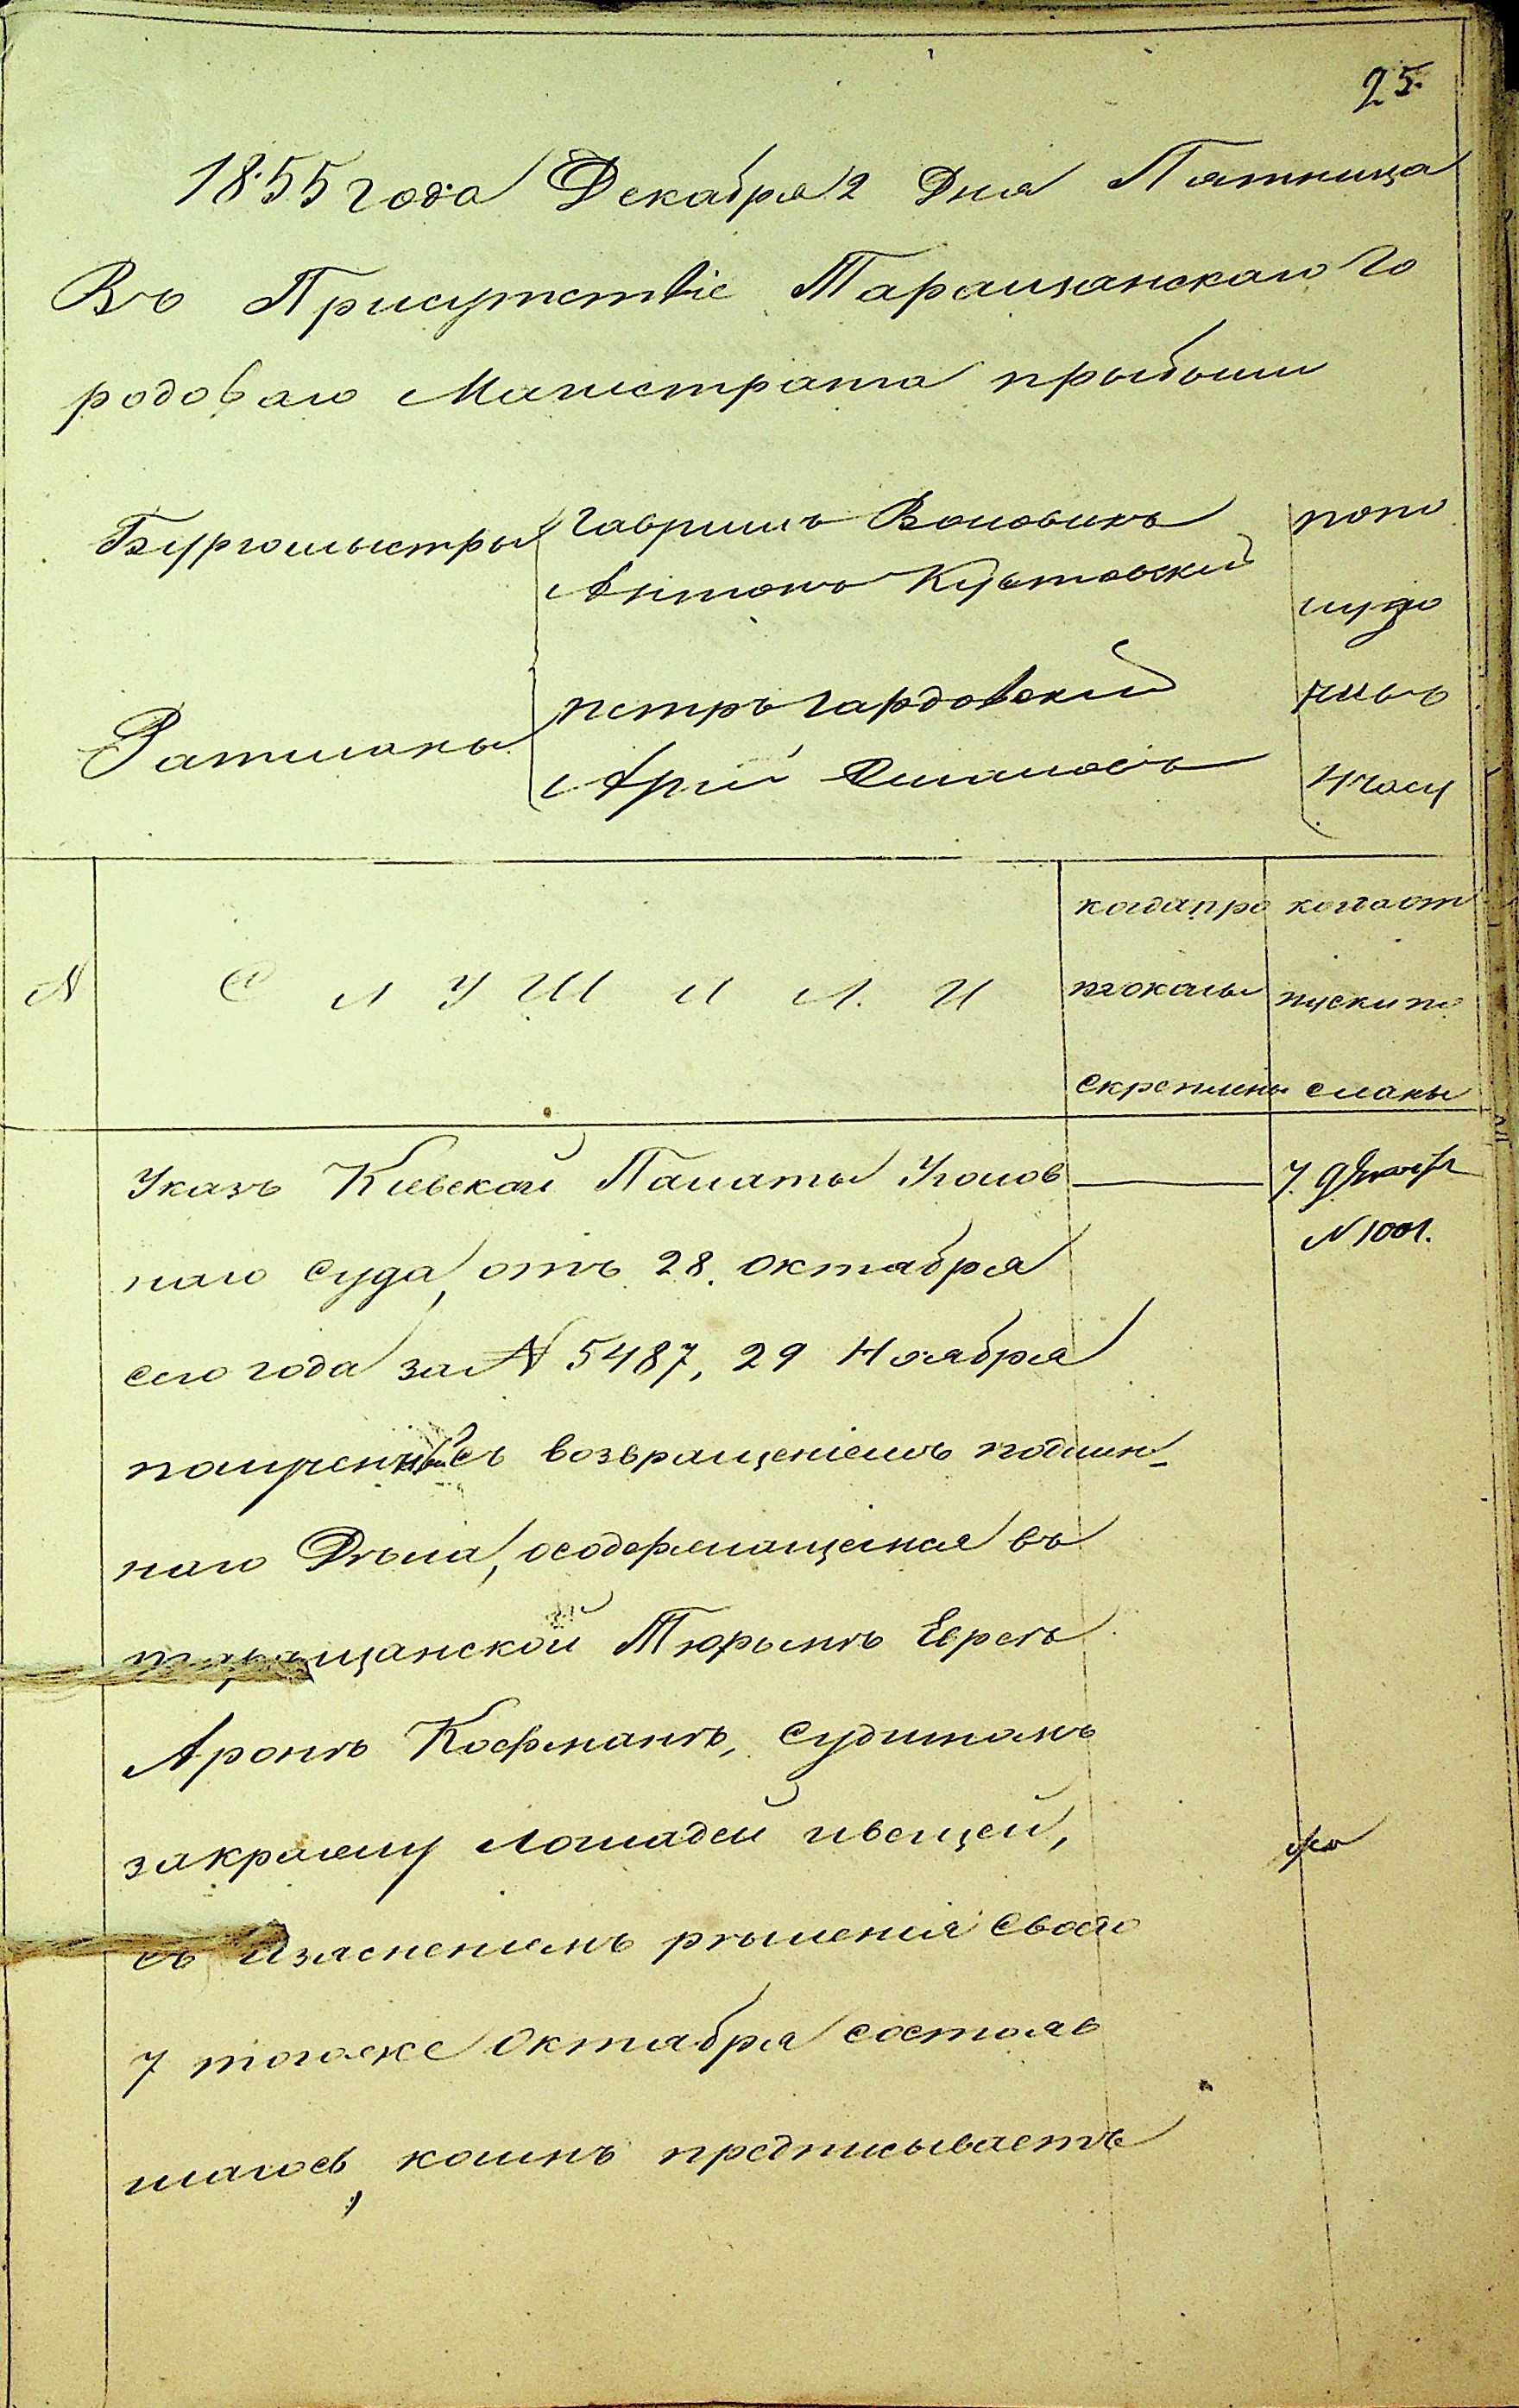 25.
1855 года Декабря 2 Дня Пятница
Въ Присутствіе Таращанскаго Го
родоваго Магистрата прыбыли
Бургомыстры Гаврыилъ Воловикъ
Антонъ Кульговский
Ратманы Петръ Гардовский
Арий
попо
лудо
4 часу
N
С Л У Ш А Л И
когда про
токолы
скреплены
когда от
пуски по
сланы
Указъ Киевской Палаты Уголов
7. Декабр
наго Суда, отъ 28. Октября
N 1001.
сего года за N 5487, 29 Ноября
полученный съ возвращеніемъ подлин-
наго Дѣла, о содержащемся въ
таращанской Тюрьмѣ Евреѣ
Аронѣ Кофманѣ, судимомъ
за кражу лошадей и вещей,
съ изяснениемъ рѣшения своего
7 того же Октября состояв
шагося, коимъ предписываетъ